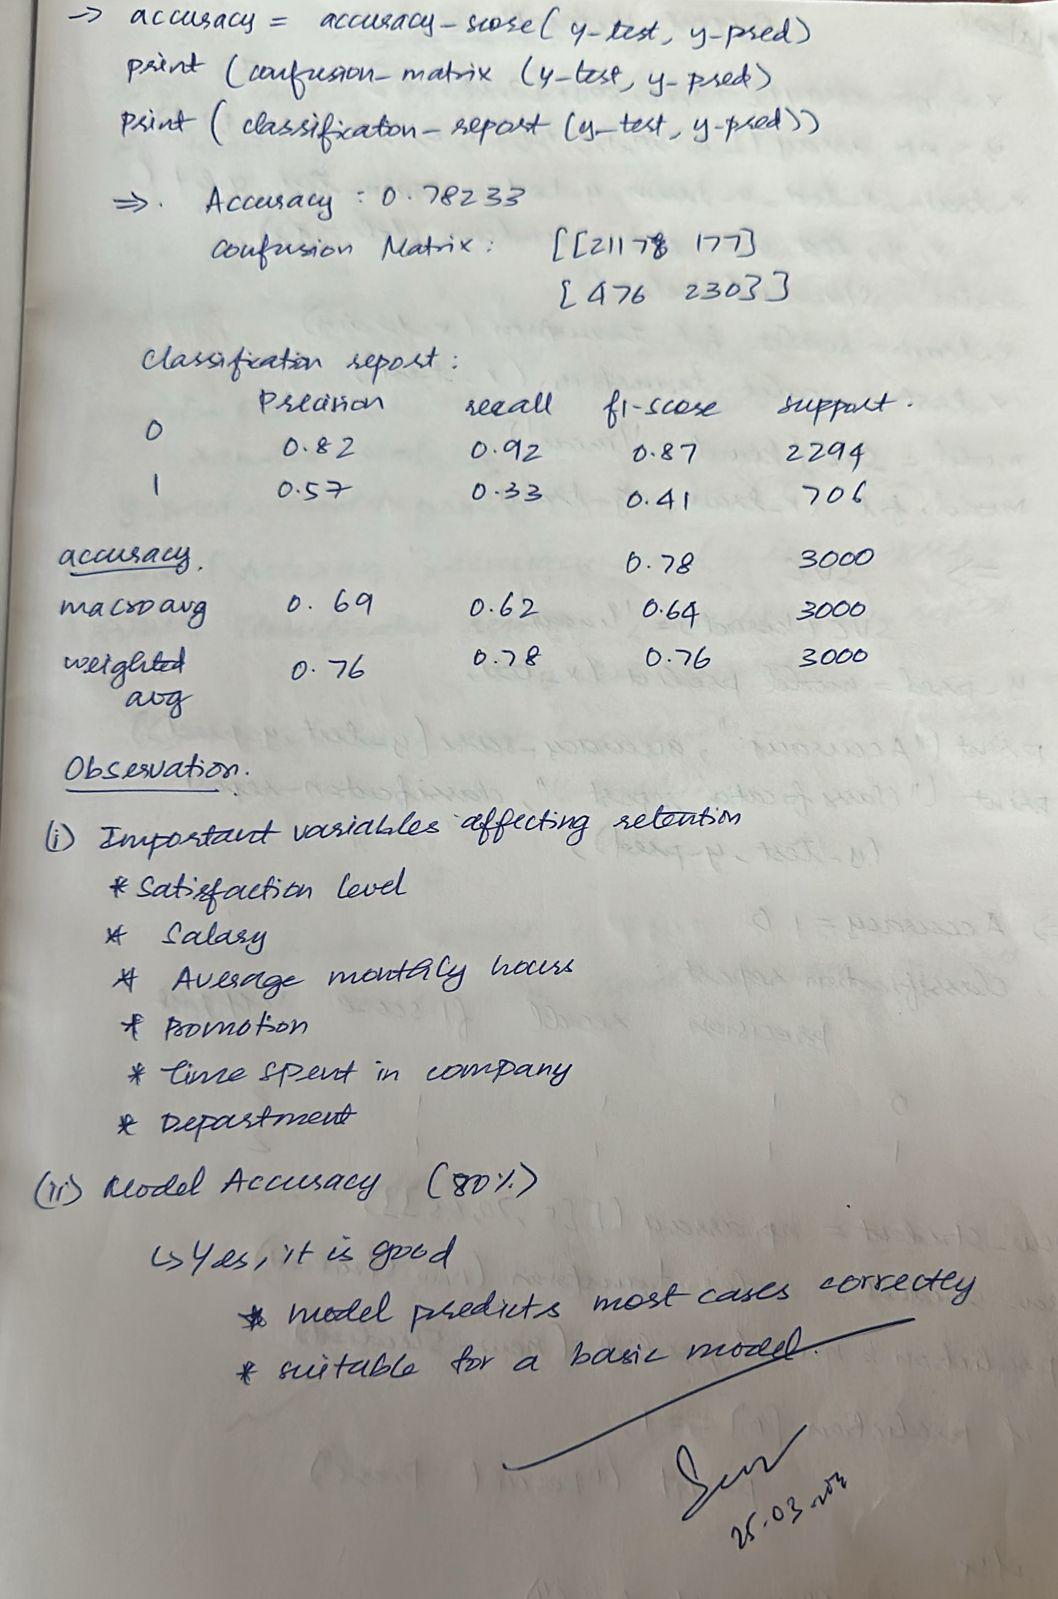 → accuracy = accuracy-score( y-test, y-pred)
print (confusion-matrix (y-test, y-pred)
print ( classification-report (y-test, y-pred))
⇒. Accuracy : 0.78233
Confusion Matrix : [[2117 177]
[ 476 230]]
Classification report :
Precision recall f1-score support.
0 0.82 0.92 0.87 2294
1 0.57 0.33 0.41 706
accuracy. 0.78 3000
macro avg 0.69 0.62 0.64 3000
weighted 0.76 0.78 0.76 3000
avg
Observation.
(i) Important variables affecting retention
* Satisfaction level
* Salary
* Average monthly hours
* Promotion
* time spent in company
* Department
(ii) Model Accuracy (80%)
↳ Yes, it is good
* model predicts most cases correctly
* suitable for a basic model.
25.03